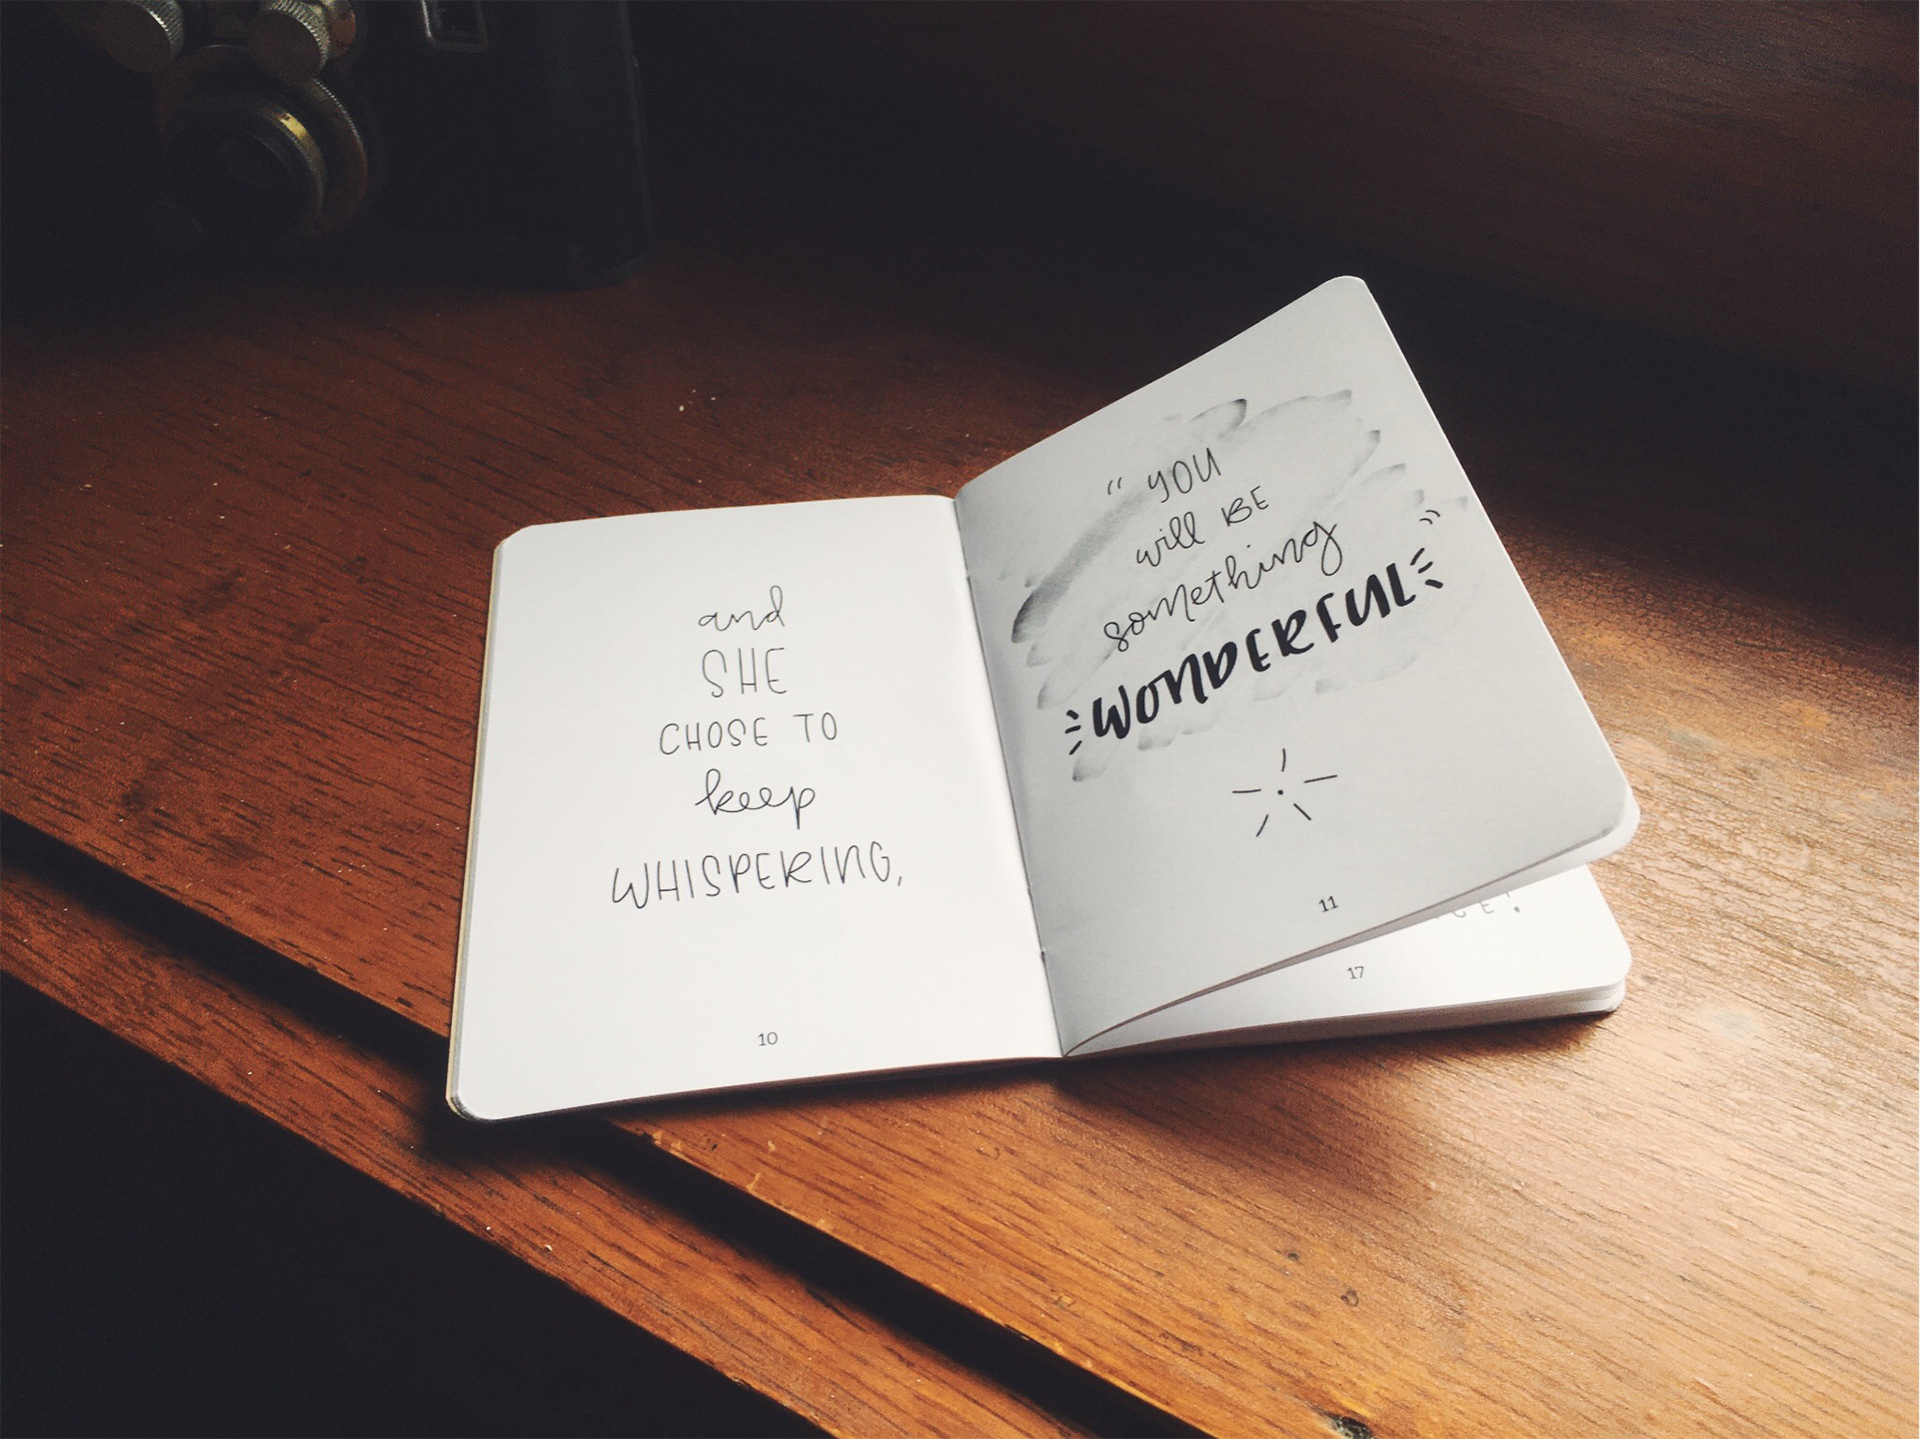 and
SHE
CHOSE TO
keep
WHISPERING,
10
“YOU
will BE
something
WONDERFUL”
11
17